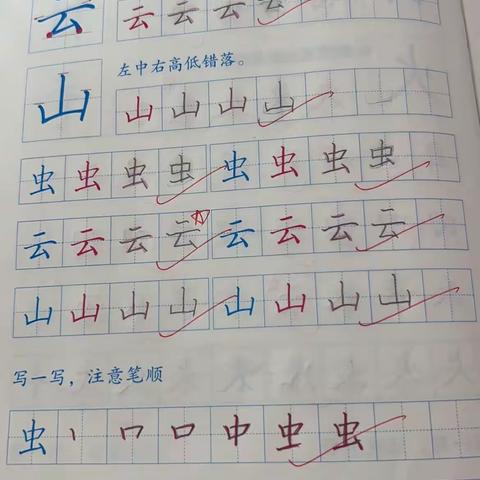 云 云 云 云 云
左中右高低错落。
山 山 山 山 山
虫 虫 虫 虫 虫 虫 虫 虫
云 云 云 云 云 云 云 云
山 山 山 山 山 山 山 山
写一写，注意笔顺
虫 丶 口 口 中 虫 虫